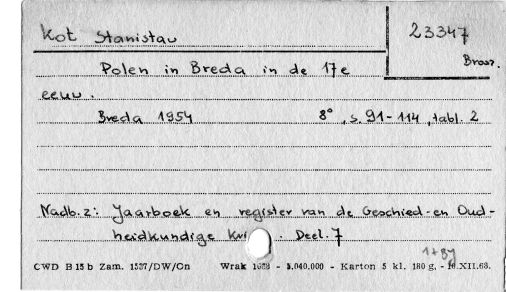 Kot Stanisław
23347
Brosz.
Polen in Breda in de 17e
eeuw.
Breda 1954 8°, s. 91-114, tabl. 2
Nadb. z: Jaarboek en register van de Geschied-en Oud-
heidkundige Kri . Deel. 7
CWD B 15 b Zam. 1537/DW/On Wrak - 5.040.000 - Karton 5 kl. 180 g, - XII.63.